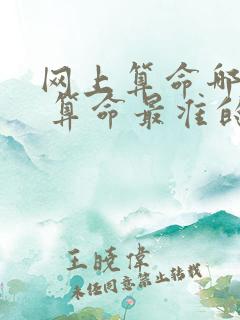 网上算命哪
算命最准的
王晓伟
未经同意禁止转载